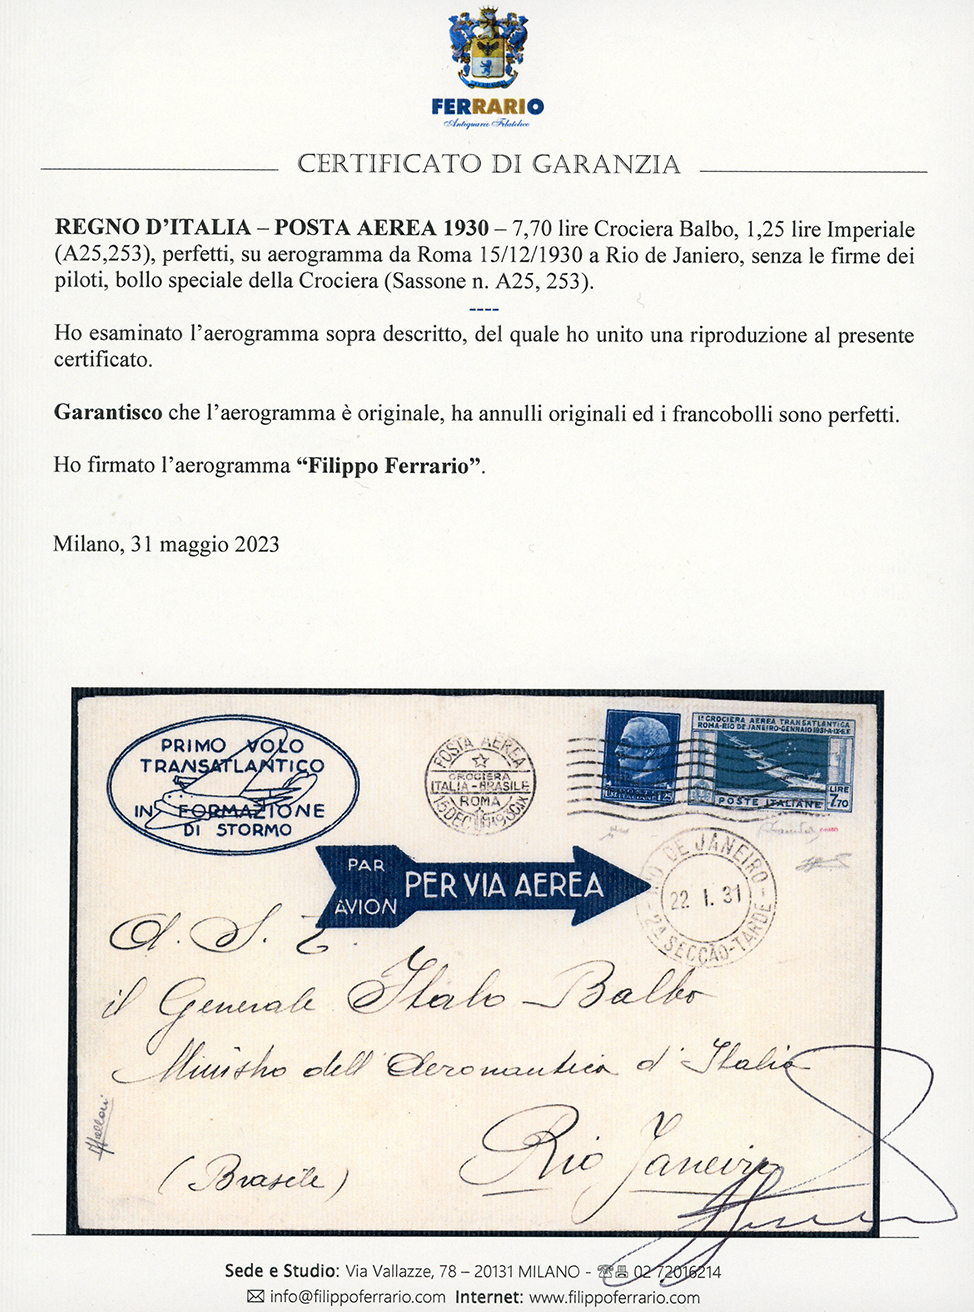 FERRARIO
Antiquario Filatelico
CERTIFICATO DI GARANZIA
REGNO D’ITALIA – POSTA AEREA 1930 – 7,70 lire Crociera Balbo, 1,25 lire Imperiale
(A25,253), perfetti, su aerogramma da Roma 15/12/1930 a Rio de Janiero, senza le firme dei
piloti, bollo speciale della Crociera (Sassone n. A25, 253).
----
Ho esaminato l’aerogramma sopra descritto, del quale ho unito una riproduzione al presente
certificato.
Garantisco che l’aerogramma è originale, ha annulli originali ed i francobolli sono perfetti.
Ho firmato l’aerogramma “Filippo Ferrario”.
Milano, 31 maggio 2023
PRIMO VOLO
TRANSATLANTICO
IN FORMAZIONE
DI STORMO
POSTA AEREA
CROCIERA
ITALIA-BRASILE
ROMA
15 DEC 1930 IX
1ª CROCIERA AEREA TRANSATLANTICA
ROMA-RIO DE JANEIRO-GENNAIO 1931-A·IX·E.F.
LIRE
7,70
POSTE ITALIANE
PAR
AVION
PER VIA AEREA
RIO DE JANEIRO
22 I. 31
2ª SECCÃO-TARDE
A. S. E.
il Generale Italo Balbo
Ministro dell' Aeronautica d' Italia
Rio Janeiro
(Brasile)
Sede e Studio: Via Vallazze, 78 – 20131 MILANO - 02 72016214
info@filippoferrario.com Internet: www.filippoferrario.com